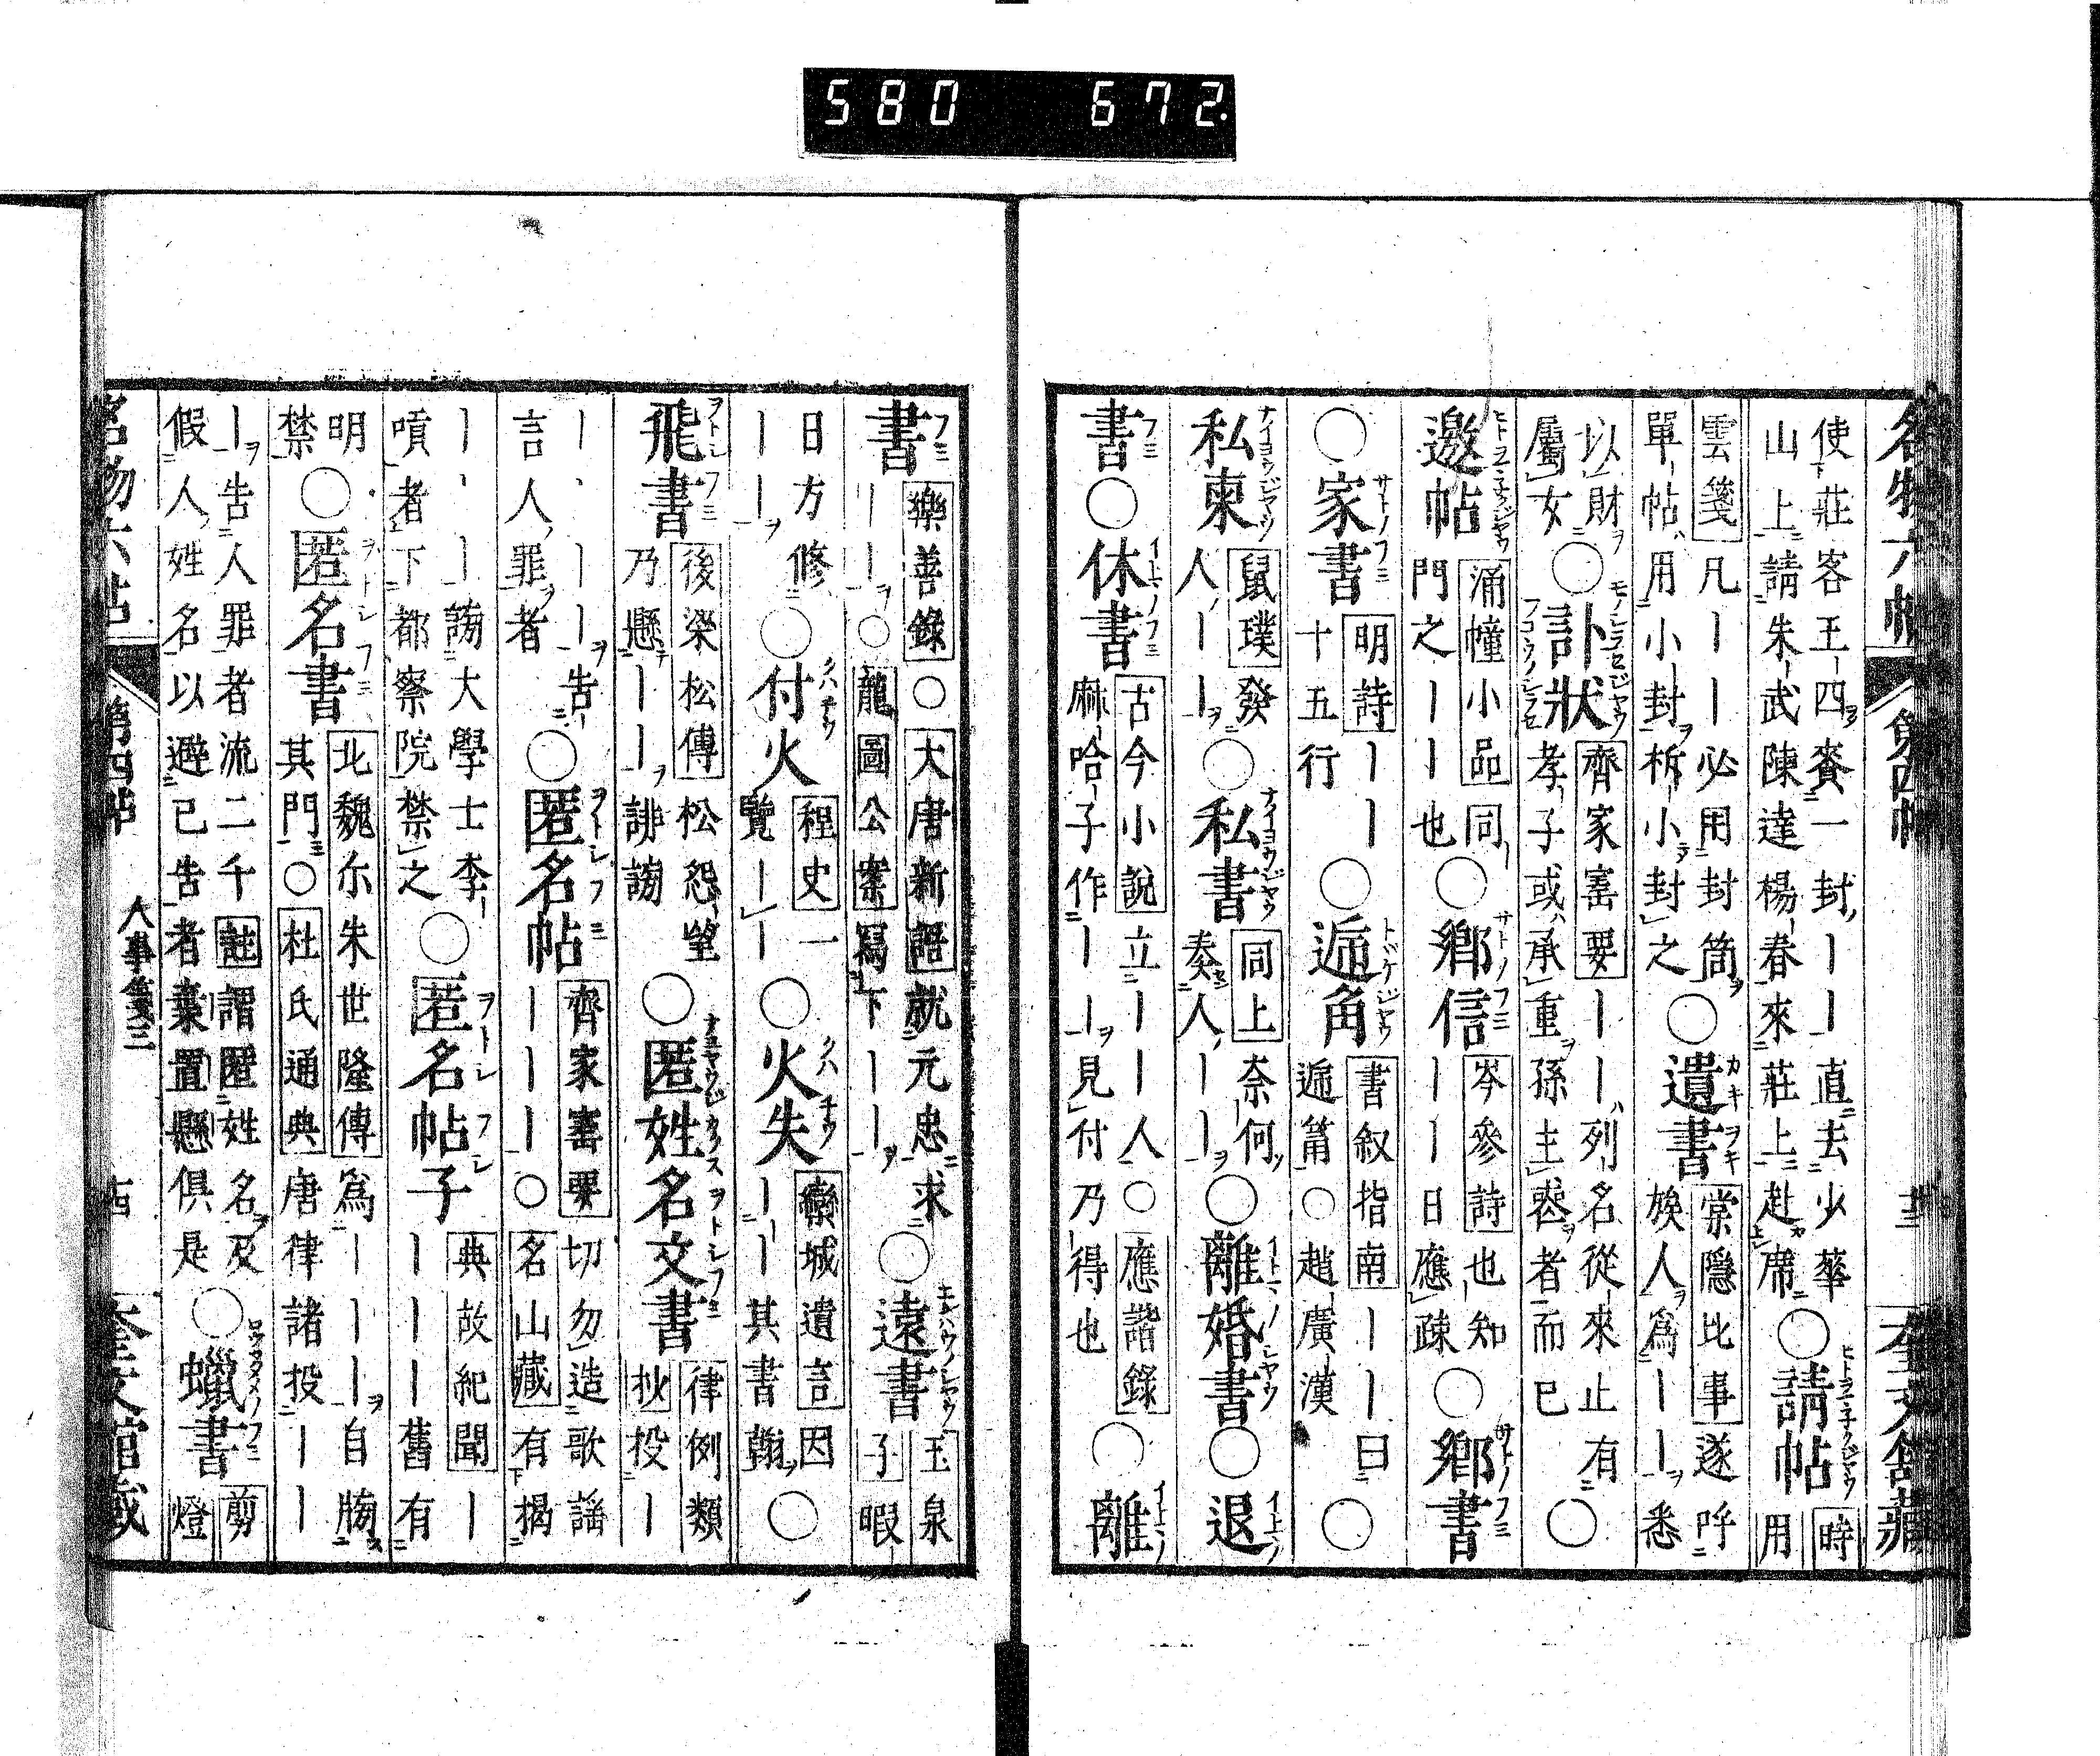 580 672.
名物六帖 第四帖 十三 奎文館藏
使莊客王四賚一封ーー直去少華
山上請朱武陳達楊春來莊上赴席○請帖 時用
雲箋 凡ーー必用封筒
單帖用小封柝小封之○遺書 棠隱比事 遂呼
族人爲ーー悉
以財
屬女○訃狀 齊家寚要 ーー列名從來止有
孝子或承重孫主喪者而已○
邀帖 涌幢小品 同
門之ーー也○鄉信 岑參詩 也知
ーー日應疎○鄉書
○家書 明詩 ーー
十五行○遞角 書叙指南 ーー曰
遞筩○趙廣漢○
私柬 鼠璞 發
人ーー○私書 同上 奈何
奏人ーー○離婚書○退
書○休書 古今小說 立ーー人○應諧錄
麻哈子作ーー見付乃得也○離
書 樂善錄○大唐新語 就元忠求
ーー○龍圖公案 寫下ーー○遠書 玉泉子 暇
日方修
ーー○付火 程史 一
覽ーー○火失 欒城遺言 因
ーー其書翰○
飛書 後梁松傳 松怨望
乃懸ーー誹謗○匿姓名文書 律例類
抄 投ー
ーーー告
言人罪者○匿名帖 齊家寚要 切勿造歌謠
ーーー○名山藏 有揭
ーーー謗大學士李
嘖者下都察院禁之○匿名帖子 典故紀聞 ー
ーーー舊有
明
禁○匿名書 北魏尒朱世隆傳 爲ーーー自牓
其門○杜氏通典 唐律諸投ーー
ー告人罪者流二千 註 謂匿姓名及
假人姓名以避己告者棄置懸俱是○蠟書 剪燈
名物六帖 第四帖 人事箋三 十四 奎文館藏